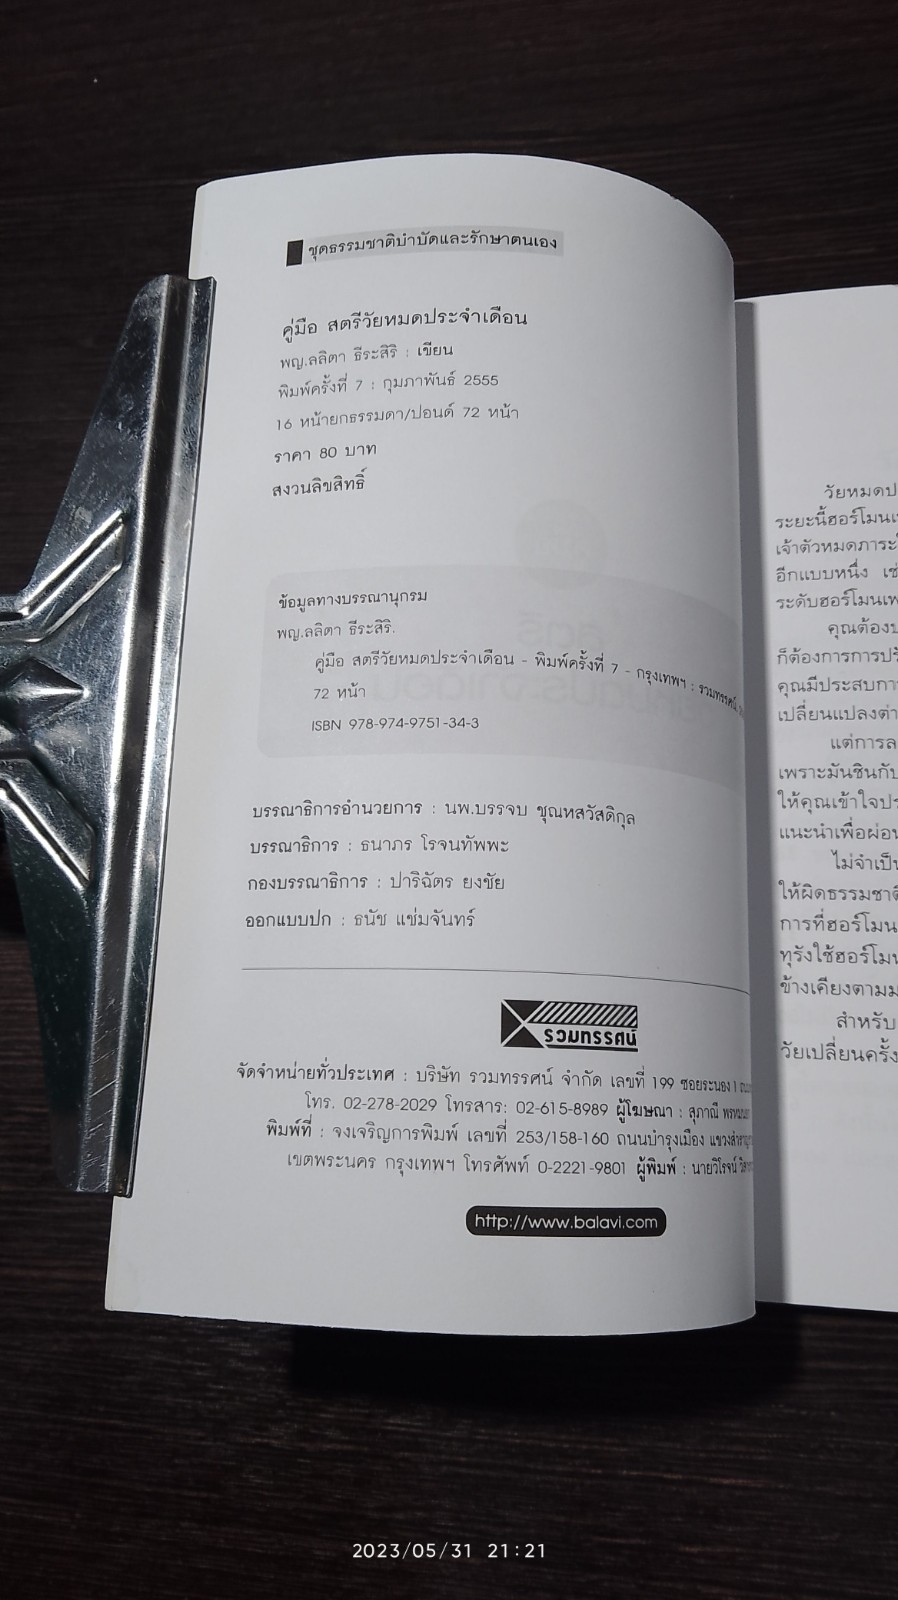 ชุดธรรมชาติบำบัดและรักษาตนเอง
คู่มือ สตรีวัยหมดประจำเดือน
พญ.ลลิตา ธีระสิริ : เขียน
พิมพ์ครั้งที่ 7 : กุมภาพันธ์ 2555
16 หน้ายกธรรมดา/ปอนด์ 72 หน้า
ราคา 80 บาท
สงวนลิขสิทธิ์
ข้อมูลทางบรรณานุกรม
พญ.ลลิตา ธีระสิริ.
คู่มือ สตรีวัยหมดประจำเดือน - พิมพ์ครั้งที่ 7 - กรุงเทพฯ : รวมทรรศน์
72 หน้า
ISBN 978-974-9751-34-3
บรรณาธิการอำนวยการ : นพ.บรรจบ ชุณหสวัสดิกุล
บรรณาธิการ : ธนาภร โรจนทัพพะ
กองบรรณาธิการ : ปาริฉัตร ยงชัย
ออกแบบปก : ธนัช แช่มจันทร์
รวมทรรศน์
จัดจำหน่ายทั่วประเทศ : บริษัท รวมทรรศน์ จำกัด เลขที่ 199 ซอยระนอง 1
โทร. 02-278-2029 โทรสาร: 02-615-8989 ผู้โฆษณา : สุภาณี
พิมพ์ที่ : จงเจริญการพิมพ์ เลขที่ 253/158-160 ถนนบำรุงเมือง
เขตพระนคร กรุงเทพฯ โทรศัพท์ 0-2221-9801 ผู้พิมพ์ : นายวิโรจน์
http://www.balavi.com
วัยหมดป
ระยะนี้ฮอร์โมนเ
เจ้าตัวหมดภาระ
อีกแบบหนึ่ง เช่
ระดับฮอร์โมนเพ
คุณต้อง
ก็ต้องการการปรั
คุณมีประสบกา
เปลี่ยนแปลงต่
แต่การล
เพราะมันชินกับ
ให้คุณเข้าใจปร
แนะนำเพื่อผ่อน
ไม่จำเป็น
ให้ผิดธรรมชาติ
การที่ฮอร์โมน
ทุรังใช้ฮอร์โมน
ข้างเคียงตามม
สำหรับ
วัยเปลี่ยนครั้ง
2023/05/31 21:21